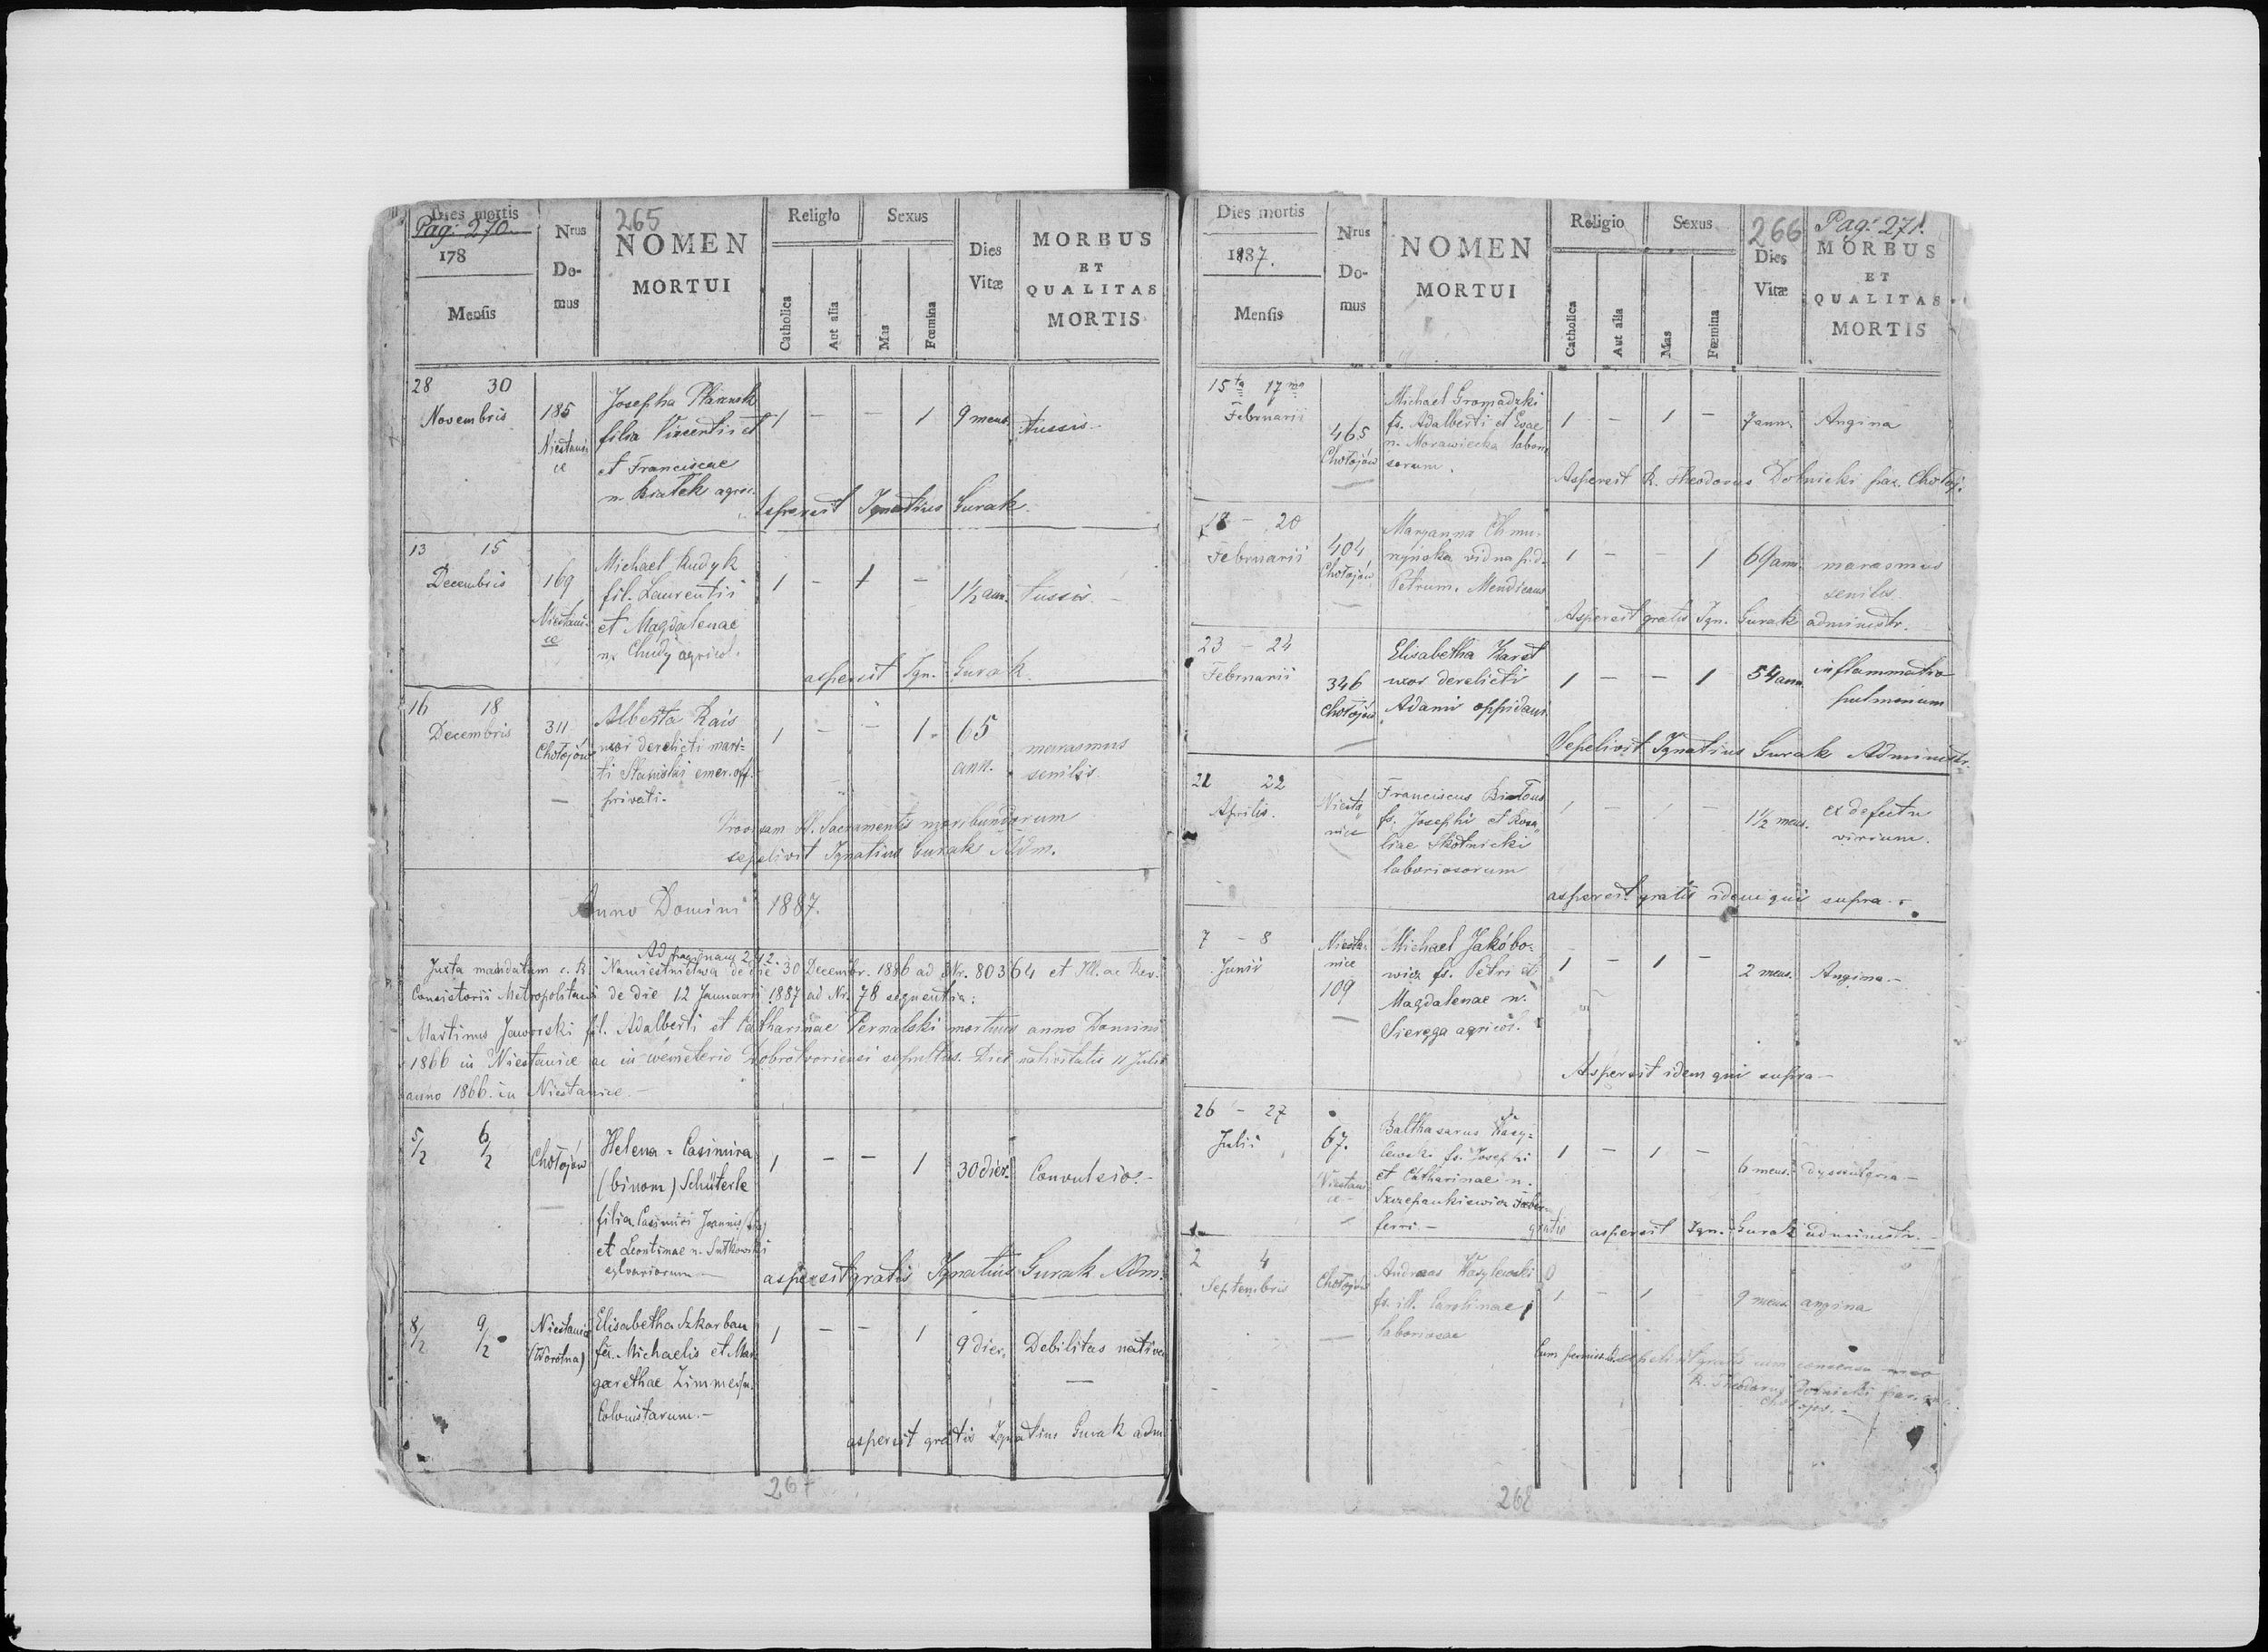 Dies mortis
Pag: 270
178
Mensis
Nrus
Do-
mus
265
NOMEN
MORTUI
Religio
Catholica
Aut alia
Sexus
Mas
Fœmina
Dies
Vitæ
MORBUS
ET
QUALITAS
MORTIS
28 30
Novembris
185
Niestani
ce
Josepha
filia Vincentii et
et Franciscae
n. Białek agric.
1 - - 1
9 mens.
tussis -
Aspersit Ignatius Gurak.
13 15
Decembris
169
Niestani-
ce
Michael Rudyk
fil. Laurentii
et Magdalenae
n. Chudy agricol.
1 - 1 -
1½ ann.
tussis. -
aspersit Ign. Gurak.
16 18
Decembris
311
Chołojów
-
Alberta Rais
uxor derelicti mari-
ti Stanislai emer. off.
privati.
1 - - 1
65
ann.
marasmus
senilis.
Provisam SS. Sacramentis moribundorum
sepelivit Ignatius Gurak Adm.
Anno Domini 1887.
Ad paginam 242.
Juxta mandatum c. R. Namiestnictwa de die 30 Decembr. 1886 ad Nr. 80364 et Ill. ac Rev.
Consistorii Metropolitani de die 12 Januarii 1887 ad Nr. 78 sequentia:
Martinus Jaworski fil. Adalberti et Catharinae Pernalski mortuus anno Domini
1866 in Niestanice ac in cemeterio Dobrotvoriensi sepultus. Dies nativitatis 11 Julii
anno 1866. in Niestanice. -
5/2 6/2
Chołojów
Helena - Casimira
(binom) Schüterle
filia Casimiri Joannis
et Leontinae n. Sutkowski
sylvariorum -
1 - - 1
30 dier.
Convulsio. -
aspersit gratis Ignatius Gurak Adm.
8/2 9/2
Niestanice
(Worotna)
Elisabetha Szkarban
fa. Michaelis et Mar-
garethae
Colonistarum. -
1 - - 1
9 dier.
Debilitas nativa
-
aspersit gratis Ignatius Gurak adm
267
Dies mortis
1887.
Mensis
Nrus
Do-
mus
NOMEN
MORTUI
Religio
Catholica
Aut alia
Sexus
Mas
Fœmina
266
Dies
Vitæ
Pag: 271.
MORBUS
ET
QUALITAS
MORTIS
15ta 17ma
Februarii
465
Chołojów
Michael Gromadzki
fs. Adalberti et Evae
n. Morawiecka labori-
sorum.
1 - 1 -
7 ann.
Angina
Aspersit R. Theodorus Dolnicki par. Chołoj.
18 - 20
Februarii
404
Chołojów
Maryanna Chmu-
rzyńska vidua p. d.
Petrum. Mendicans
1 - - 1
69 ann.
marasmus
senilis.
Aspersit gratis Ign. Gurak administr.
23 - 24
Februarii
346
Chołojów
Elisabetha Karet
uxor derelicti
Adami oppidani
1 - - 1
54 ann.
inflammatio
pulmonum
Sepelivit Ignatius Gurak Administr.
21 22
Aprilis.
Niesta
nice
Franciscus Białous
fs. Josephi et Rosa-
liae Skotnicki
laboriosorum
1 - 1 -
1½ mens.
ex defectu
virium.
aspersit gratis idem qui supra. -
7 - 8
Junii
Niesta-
nice
109
Michael Jakóbo-
wicz fs. Petri et
Magdalenae n.
Sieręga agricol.
1 - 1 -
2 mens.
Angina. -
Aspersit idem qui supra -
26 - 27
Julii
67.
Niestani
ce -
Balthasarus Wasy-
lewski fs. Josephi
et Catharinae n.
Szczepankiewicz fabri
ferri. -
1 - 1 -
6 mens.
dyssenteria -
gratis aspersit Ign. Gurak administr. -
2 4
Septembris
Chołojów
Andreas Wasylewski
fs. ill. Carolinae
laboriosae
1 - 1 -
9 mens.
angina
Cum permiss. sepelivit gratis cum consensu meo
R. Theodorus Dolnicki par.
Chołojów. -
268